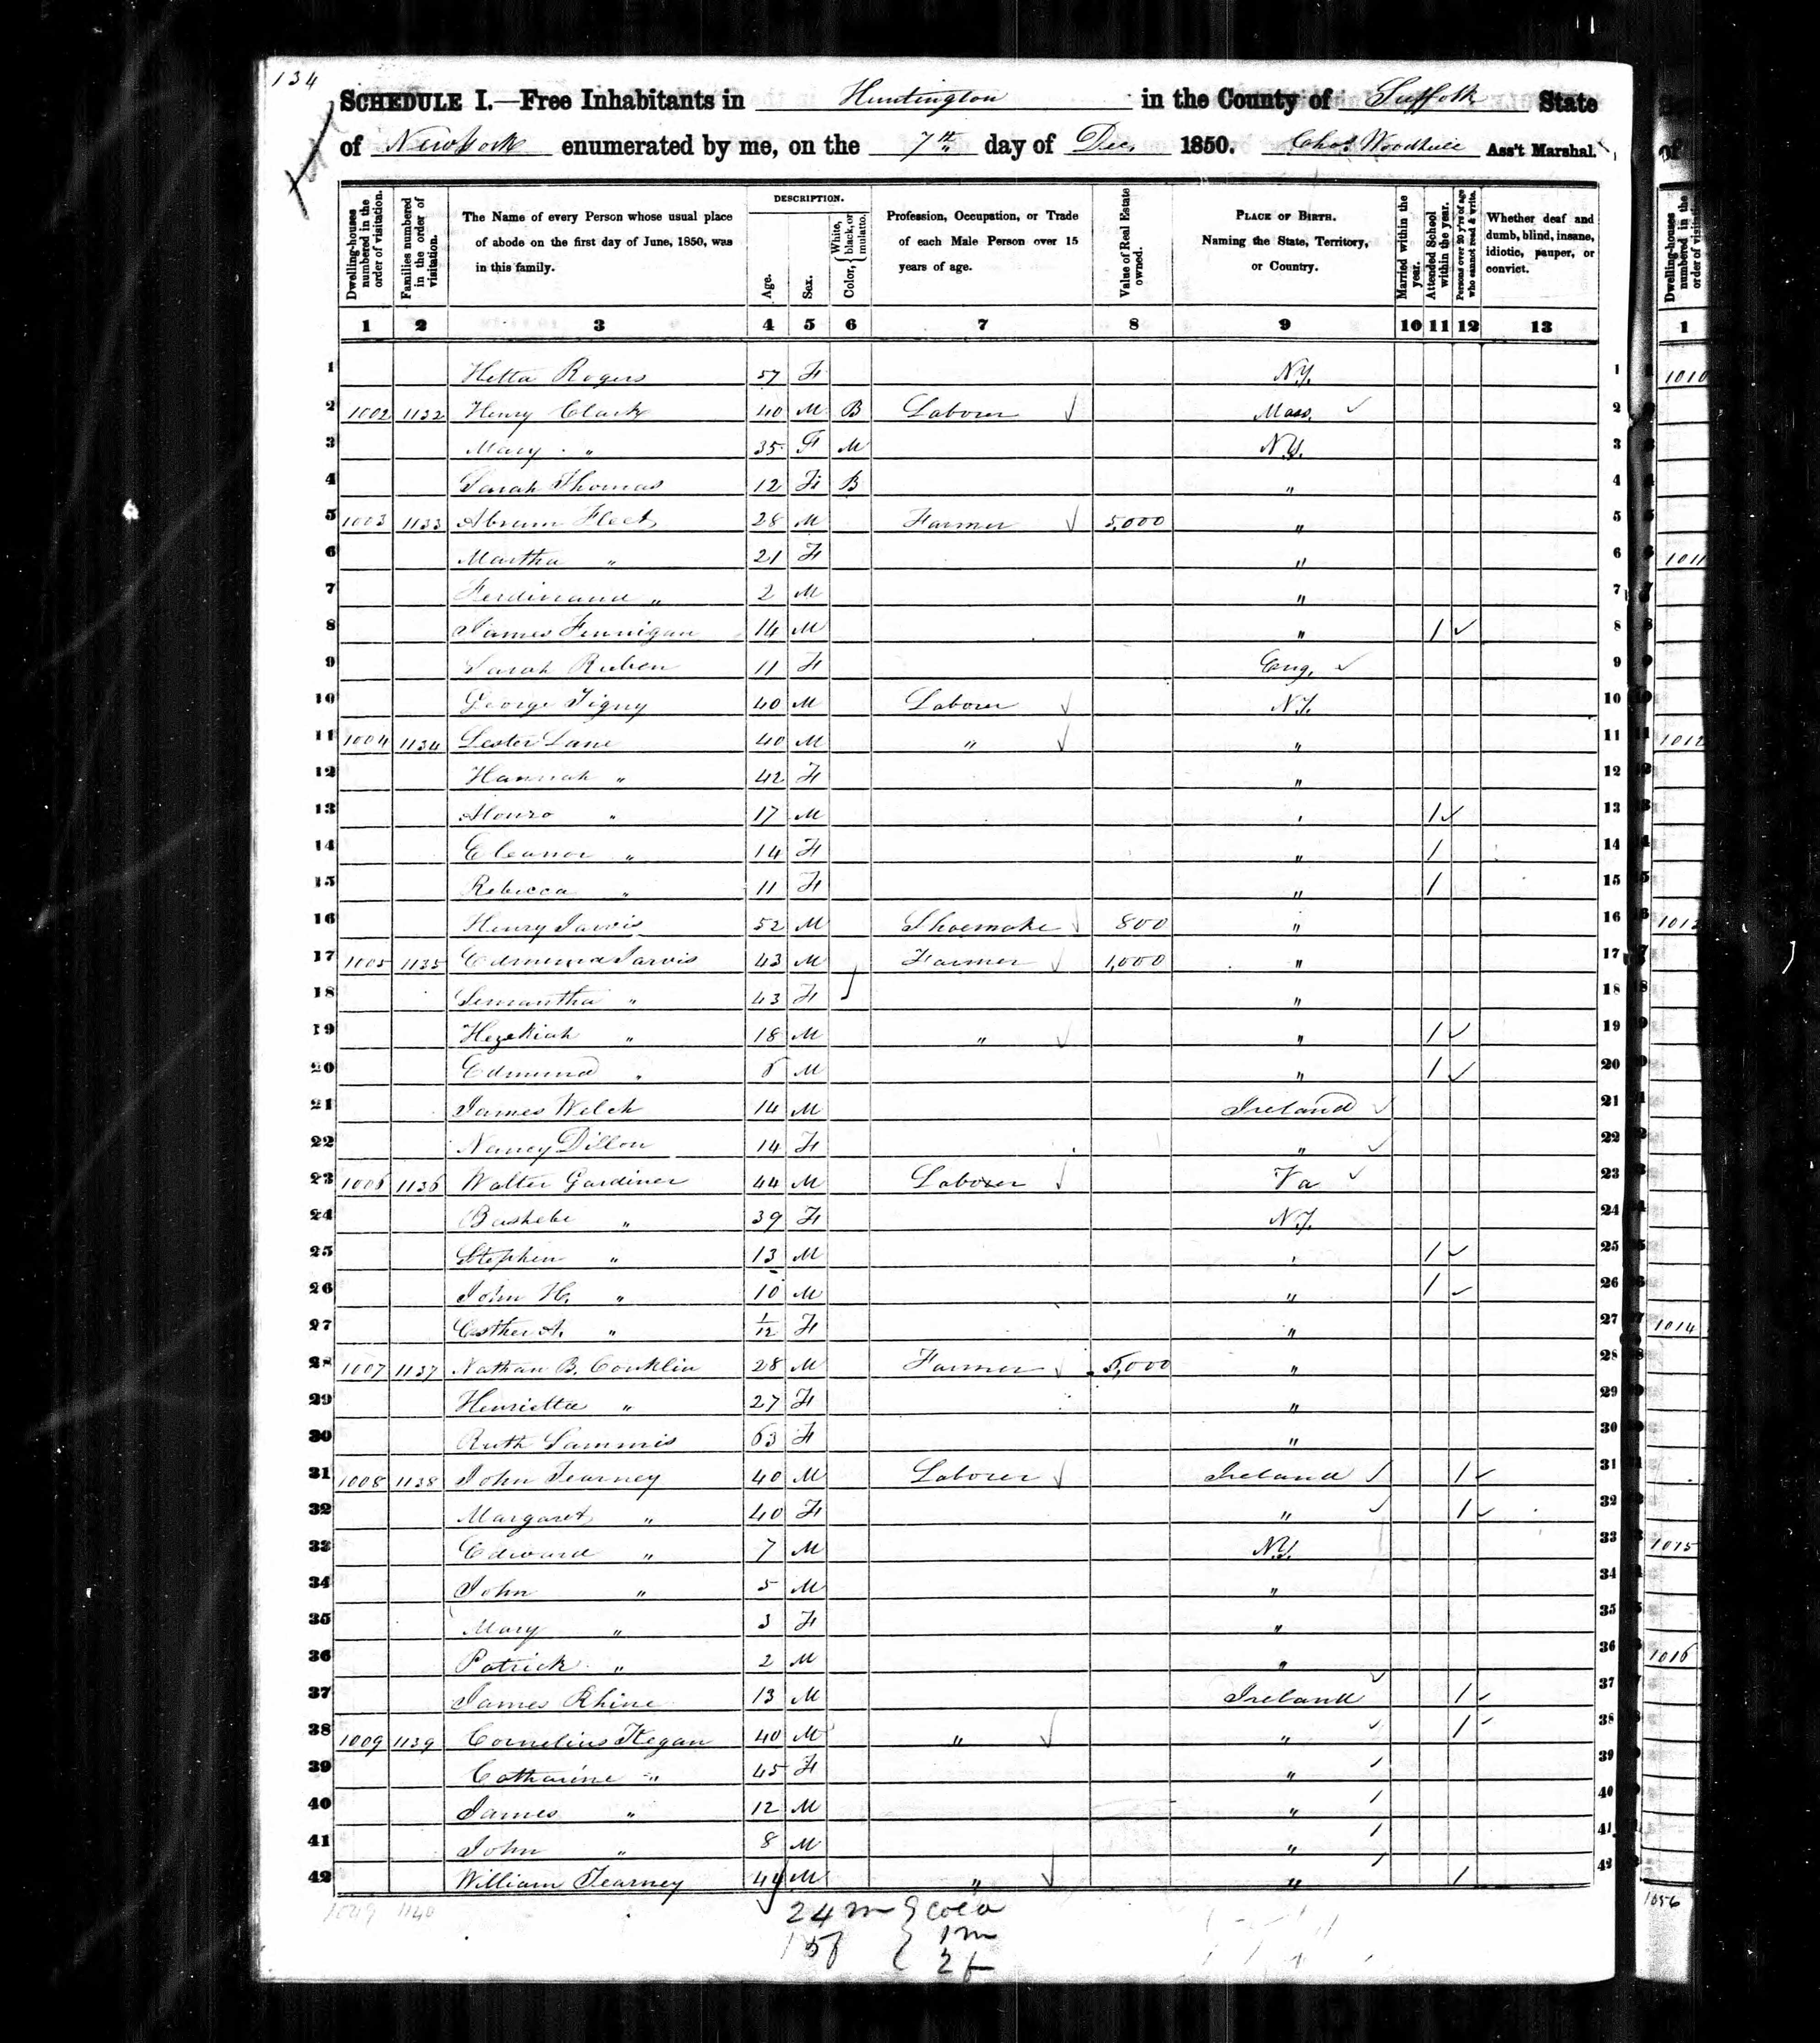 134
SCHEDULE I.—Free Inhabitants in Huntington in the County of Suffolk State
of New York enumerated by me, on the 7th day of Dec. 1850. Chas. Woodhull Ass't Marshal.
Dwelling-houses numbered in the order of visitation.
Families numbered in the order of visitation.
The Name of every Person whose usual place of abode on the first day of June, 1850, was in this family.
DESCRIPTION.
Age.
Sex.
Color, { White, black, or mulatto.
Profession, Occupation, or Trade of each Male Person over 15 years of age.
Value of Real Estate owned.
PLACE OF BIRTH. Naming the State, Territory, or Country.
Married within the year.
Attended School within the year.
Persons over 20 y'rs of age who cannot read & write.
Whether deaf and dumb, blind, insane, idiotic, pauper, or convict.
1 2 3 4 5 6 7 8 9 10 11 12 13
1 Hetta Rogers 57 F N.Y. 1
2 1002 1132 Henry Clark 40 M B Laborer ✓ Mass. ✓ 2
3 Mary " 35 F M N.Y. 3
4 Sarah Thomas 12 F B " 4
5 1003 1133 Abram Fleet 28 M Farmer ✓ 5,000 " 5
6 Martha " 21 F " 6
7 Ferdinand " 2 M " 7
8 James Finnigan 14 M " 1 ✓ 8
9 Sarah Ruben 11 F Eng. ✓ 9
10 George 40 M Laborer ✓ N.Y. 10
11 1004 1134 Lester Lane 40 M " ✓ " 11
12 Hannah " 42 F " 12
13 Alonzo " 17 M " 1 ✓ 13
14 Eleanor " 14 F " 1 14
15 Rebecca " 11 F " 1 15
16 Henry Jarvis 52 M Shoemake ✓ 800 " 16
17 1005 1135 Jarvis 43 M Farmer ✓ 1,000 " 17
18 Semantha " 43 F " 18
19 Hezekiah " 18 M " ✓ " 1 ✓ 19
20 Edmund " M " 1 ✓ 20
21 James Welch 14 M Ireland ✓ 21
22 Nancy Dillon 14 F " ✓ 22
23 1006 1136 Walter Gardiner 44 M Laborer ✓ Va ✓ 23
24 Bashebe " 39 F N.Y. 24
25 Stephen " 13 M " 1 ✓ 25
26 John H. " 10 M " 1 ✓ 26
27 Esther A. " 1/12 F " 27
28 1007 1137 Nathan B. Conklin 28 M Farmer ✓ 5,000 " 28
29 Henrietta " 27 F " 29
30 Ruth Sammis 63 F " 30
31 1008 1138 John Tearney 40 M Laborer ✓ Ireland ✓ 1 ✓ 31
32 Margaret " 40 F " ✓ 1 ✓ 32
33 Edward " 7 M N.Y. 33
34 John " 5 M " 34
35 Mary " 3 F " 35
36 Patrick " 2 M " 36
37 James Rhine 13 M Ireland ✓ 1 ✓ 37
38 1009 1139 Cornelius Hegan 40 M " ✓ " ✓ 1 ✓ 38
39 Catharine " 45 F " 39
40 James " 12 M " 40
41 John " 8 M " 41
42 William Tearney 44 M " ✓ " 1 42
1049 1140
24 m } cold
15 f { 1 m
2 f
Dwelling-houses numbered in the order of visitation
1
1010
1011
1012
1013
1014
1015
1016
1056